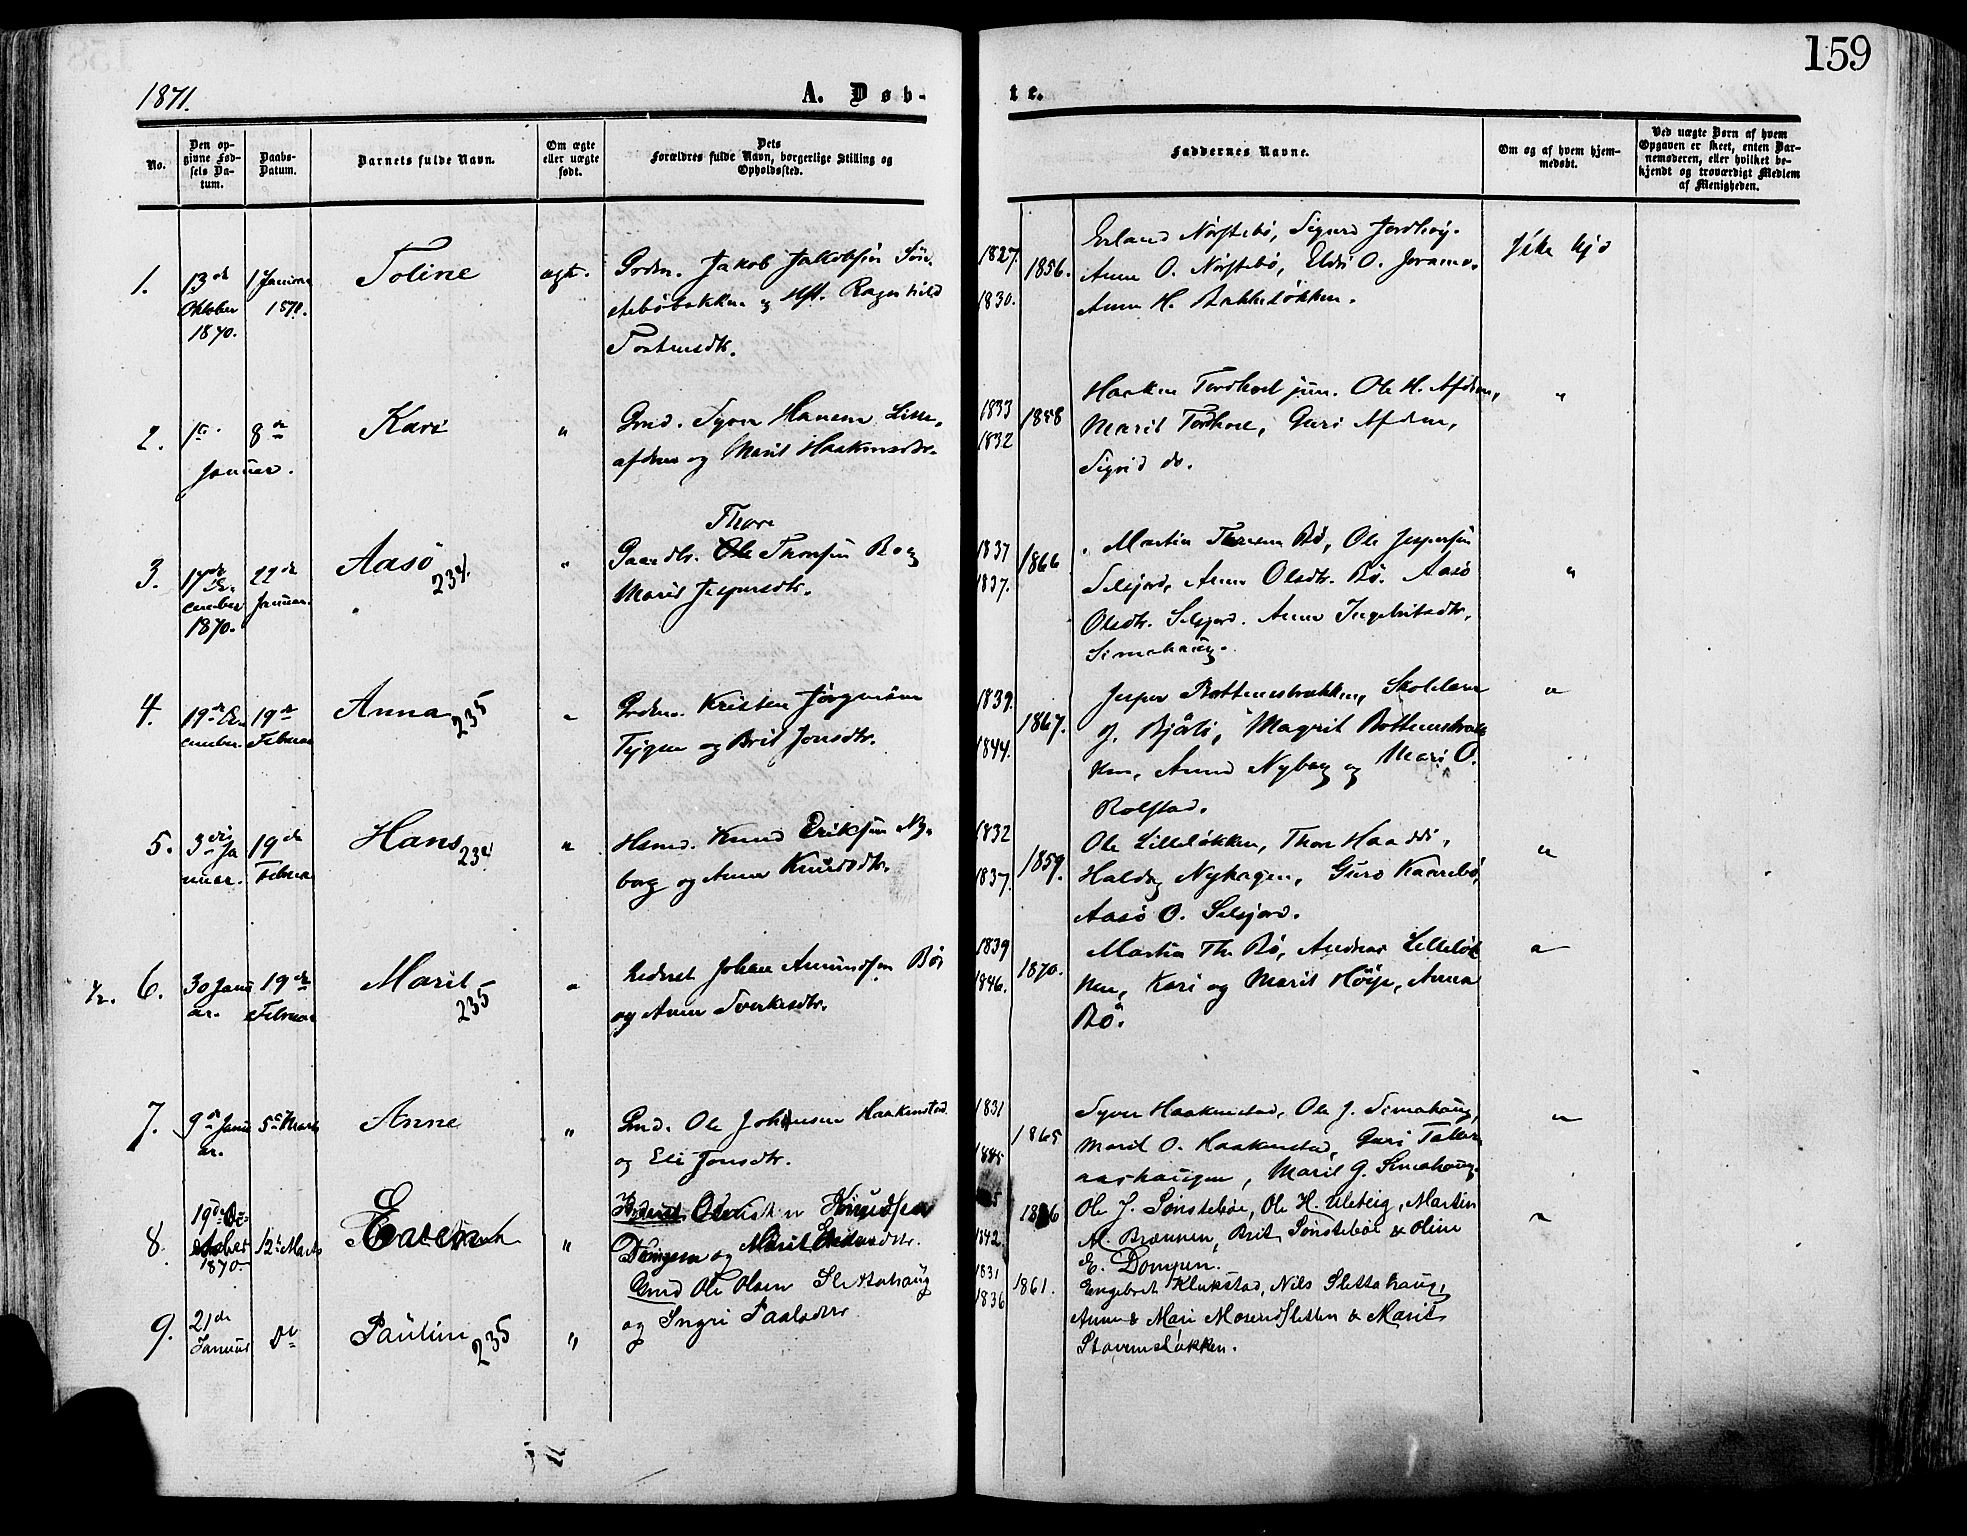 159
1871.
A. Døb-
te.
No.
Den op-
givne Fød-
sels Da-
tum.
Daabs-
Datum.
Barnets fulde Navn.
Om ægte
eller uægte
født.
Dets
Forældres fulde Navn, borgerlige Stilling og
Opholdssted.
Faddernes Navne.
Om og af hvem hjem-
medøbt.
Ved uægte Børn af hvem
Opgaven er skeet, enten Bar-
nemoderen, eller hvilket be-
kjendt og troværdigt Medlem
af Menigheden.
1.
13de
Oktober
1870.
1 Januar
1871.
Toline
ægt.
Jakob Jakobsen Søn-
stebøbakken og Hst. Ragnhild
Tostensdtr.
1827.
1830.
1856.
Erland Nørstebø, Sigurd Jordhøy.
Anne O. Nørstebø, Eldri O. Joramo.
Anne H. Bakkeløkken.
Ikke hjd
2.
1ste
8de
Januar.
Kari
"
Gmd. Syver Hansen Lille-
afdem og Marit Haakensdtr.
1833
1832
1858
Haaken Tordhoel jun. Ole H. Afdem,
Marit Tordhoel, Guri Afdem,
Sigrid do.
"
3.
17de De-
cember
1870.
22de
Januar.
Aasø
234.
"
Thore
Gaardbr. Ole Thoresen Bø og
Marit Jespersdtr.
1837
1837.
1866
Martin Thoresen Bø, Ole Jespersen
Selsjord, Anne Olsdtr. Bø. Aasø
Olsdtr. Selsjord. Anne Ingebritsdtr.
Simehaug.
"
4.
19de De-
cember.
19de
Februar
Anna
235
"
Kristen Jørgensen
og Brit Jonsdtr.
1839.
1844.
1867.
Jesper Bottemsbrækken, Skolelærer
J. Bjøli, Magrit Bottemsbræk-
ken, Anne Nyborg og Mari O.
Rolstad.
"
5.
3die Ja-
nuar.
19de
Februar
Hans
234
"
Hsmd. Knud Eriksen Ny-
borg og Anne Knudsdtr.
1832
1837.
1859.
Ole Lilleløkken, Thore Haadi,
Haldog Nyhagen, Guro Kaarebø,
Aasø O. Selsjord.
"
½. 6.
30 Janu
ar.
19de
Februar
Marit
235
"
Inderst Johan Amundsen Bø
og Anne Sverkesdtr.
1839
1846.
1870.
Martin Th. Bø, Andreas Lilleløk-
ken, Kari og Marit Høye, Anna
Bø.
"
7.
9de Janu
ar.
5te Marts
Anne
"
Gmd. Ole Johansen Haakenstad
og Eli Jonsdtr.
1831
1865
Syver Haakenstad, Ole J. Simehaug,
Marit O. Haakenstad, Guri Taler-
aashaugen, Marit G. Simehaug.
"
8.
19de Oc-
tober
1870
12te Marts
"
Inderst Knudsen
Dompen og Marit
1842.
Ole J. Sønstebøe, Ole H. Uleberg, Martin
M. Brænnen, Brit Sønstebøe & Oline
E. Dompen.
"
9.
21de
Januar
Do
Pauline
235
"
Gmd Ole Olsen Slettahaug
og Ingri Paalsdtr
1831
1836
1861.
Engebret Klukstad, Nils Slettahaug,
Anne & Mari Mosendsletten & Marit
Stavemsløkken.